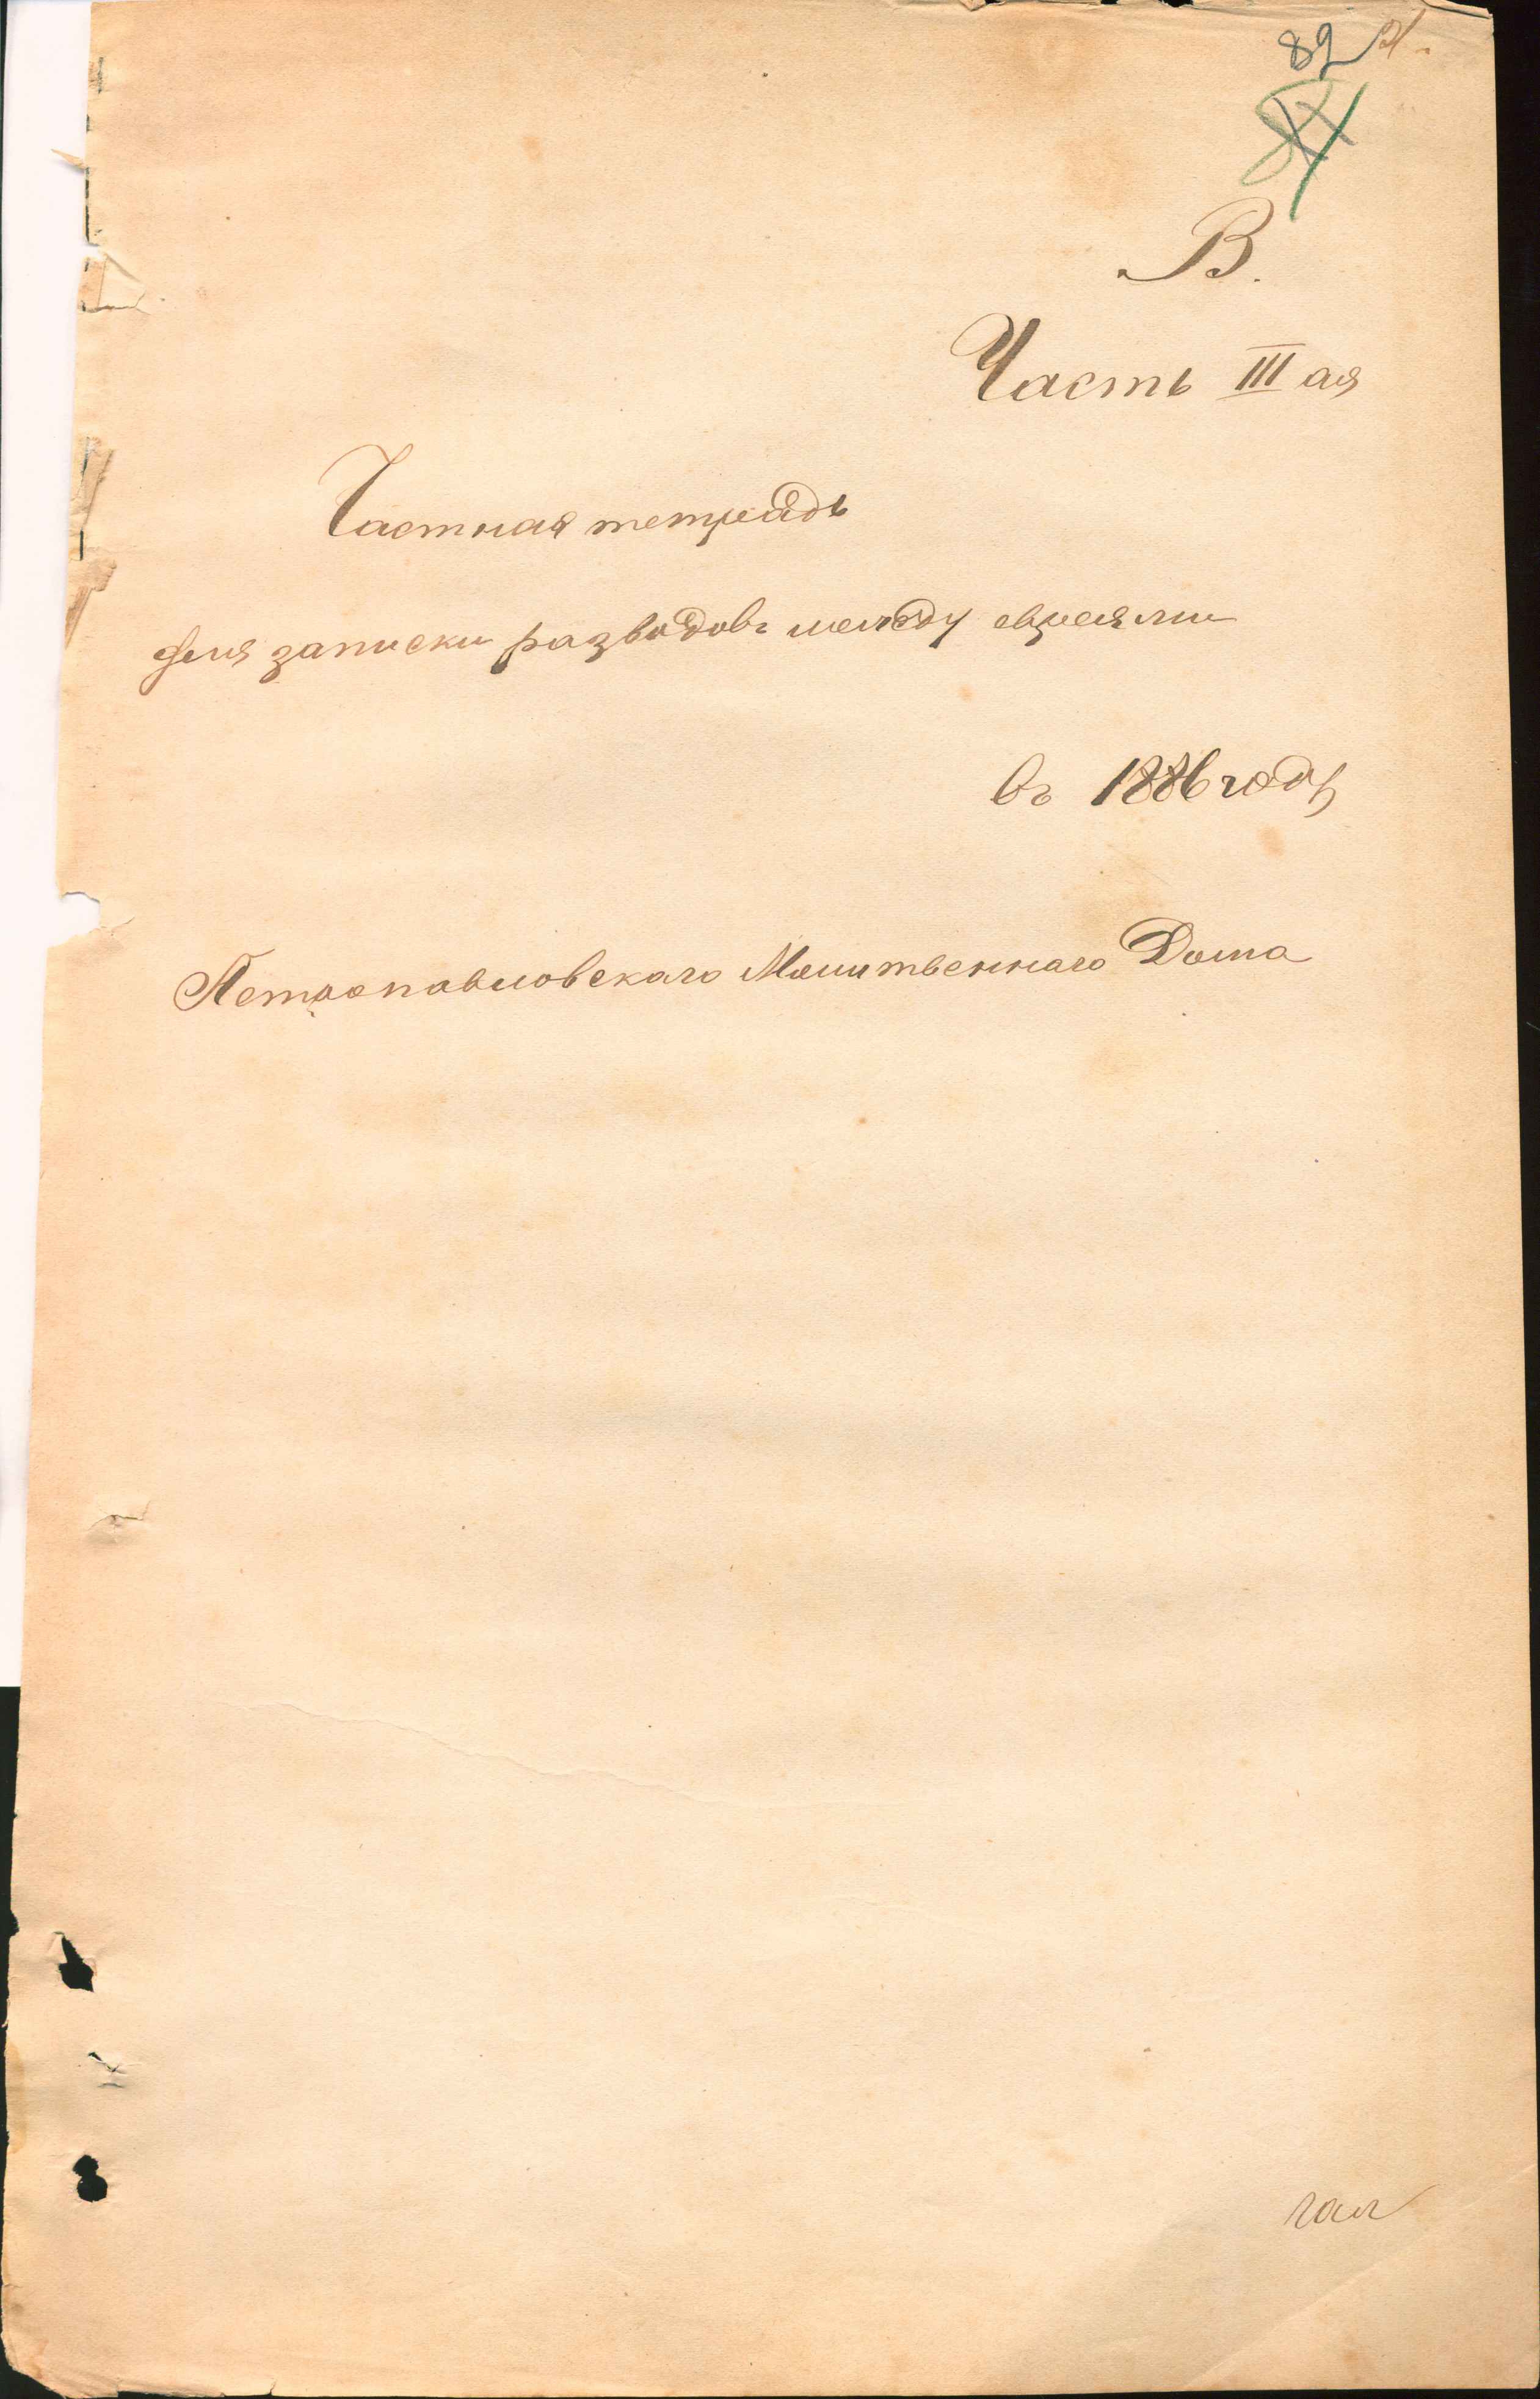 82
В.
Часть III ая
Частная тетрадь
для записки разводовъ между евреями
въ 1886 году
Петропавловскаго Молитвеннаго Дома